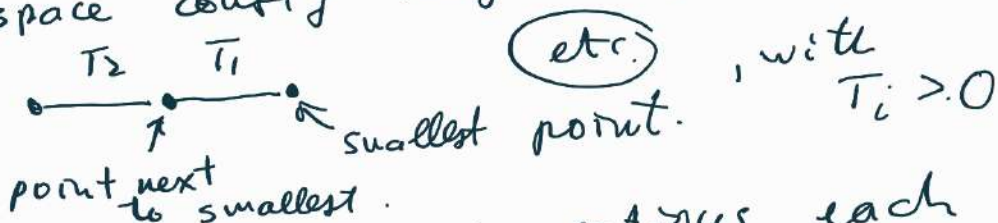 space config
T₂ T₁ (etc.) , with
Tᵢ > 0
smallest point.
point next
to smallest.
each